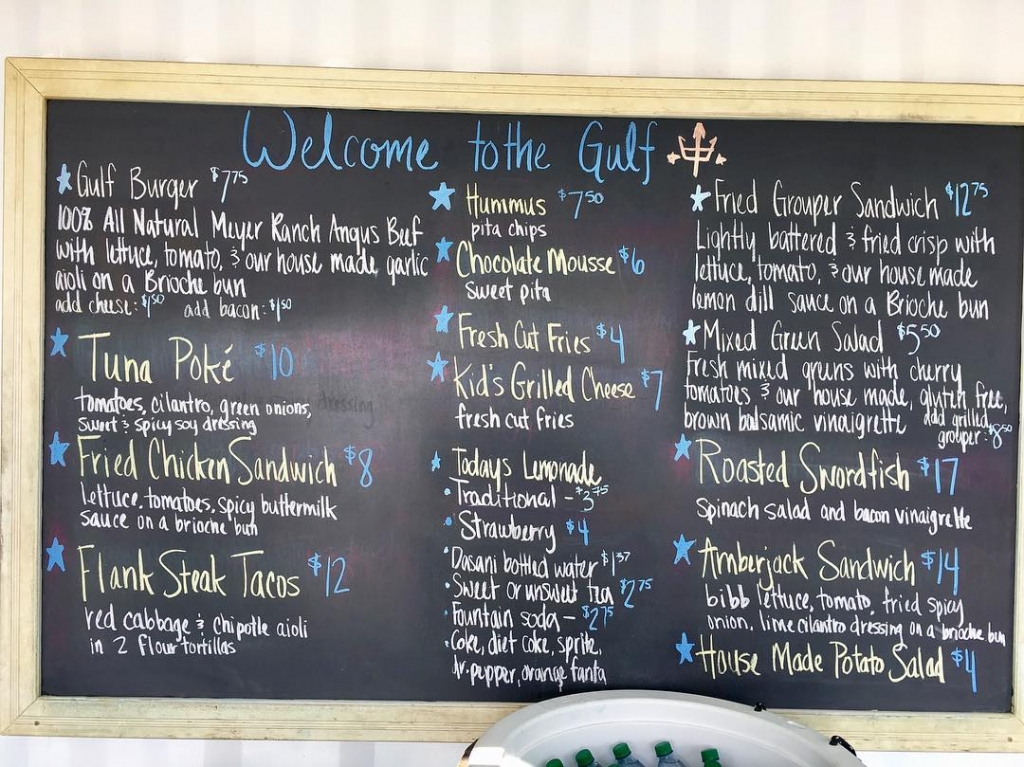 Welcome to the Gulf
Gulf Burger $7.75
100% All Natural Meyer Ranch Angus Beef
with lettuce, tomato, & our house made garlic
aioli on a Brioche bun
add cheese: $1.50 add bacon: $1.50
Tuna Poké $10
tomatoes, cilantro, green onions,
sweet & spicy soy dressing
Fried Chicken Sandwich $8
lettuce, tomatoes, spicy buttermilk
sauce on a brioche bun
Flank Steak Tacos $12
red cabbage & chipotle aioli
in 2 flour tortillas
Hummus $7.50
pita chips
Chocolate Mousse $6
Sweet pita
Fresh Cut Fries $4
Kid's Grilled Cheese $7
fresh cut fries
Todays Lemonade
Traditional - $3.75
Strawberry $4
Dasani bottled water $1.37
Sweet or unsweet tea $2.75
Fountain soda - $2.75
Coke, diet coke, sprite,
dr. pepper, orange fanta
Fried Grouper Sandwich $12.75
Lightly battered & fried crisp with
lettuce, tomato, & our house made
lemon dill sauce on a Brioche bun
Mixed Green Salad $5.50
Fresh mixed greens with cherry
tomatoes & our house made, gluten free,
brown balsamic vinaigrette add grilled
grouper: $8.50
Roasted Swordfish $17
Spinach salad and bacon vinaigrette
Amberjack Sandwich $14
bibb lettuce, tomato, fried spicy
onion, lime cilantro dressing on a brioche bun
House Made Potato Salad $4